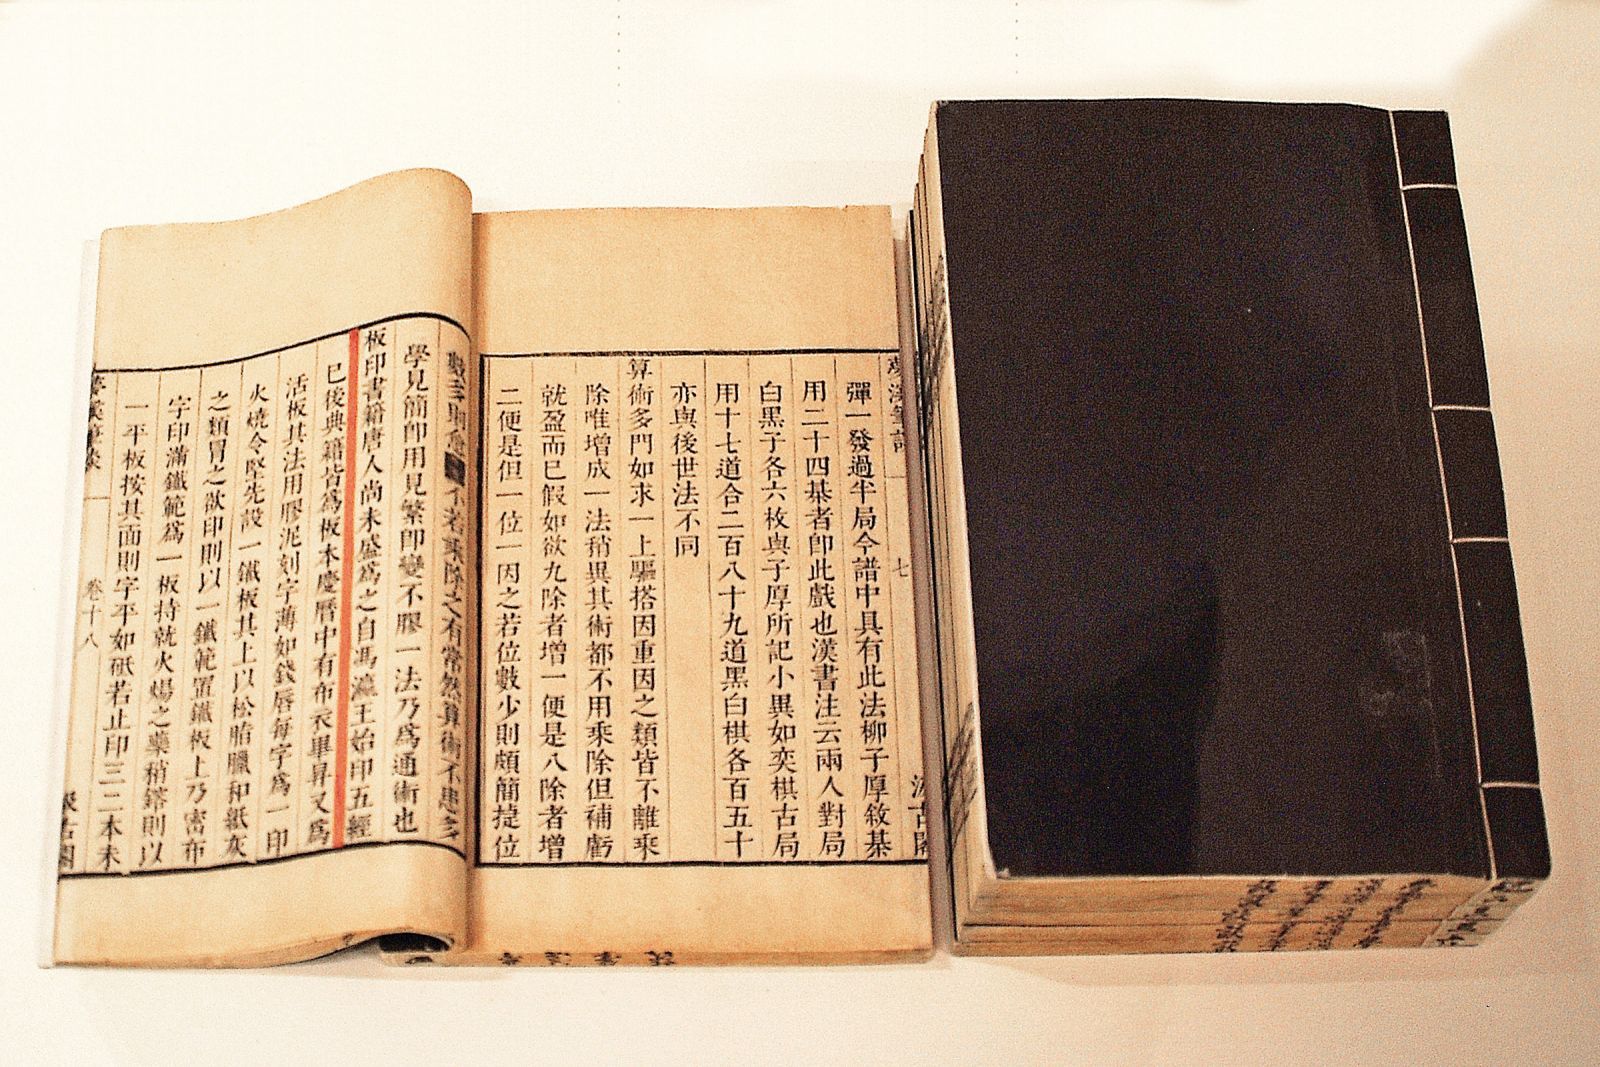 夢溪筆談
七
汲古閣
彈一發過半局今譜中具有此法柳子厚敘棊
用二十四棊者卽此戲也漢書注云兩人對局
白黑子各六枚與子厚所記小異如奕棋古局
用十七道合二百八十九道黑白棋各百五十
亦與後世法不同
算術多門如求一上驅搭因重因之類皆不離乘
除唯增成一法稍異其術都不用乘除但補虧
就盈而已假如欲九除者增一便是八除者增
二便是但一位一因之若位數少則頗簡捷位
數多則愈 不若乘除之有常然算術不患多
學見簡卽用見繁卽變不膠一法乃爲通術也
板印書籍唐人尚未盛爲之自馮瀛王始印五經
已後典籍皆爲板本慶曆中有布衣畢昇又爲
活板其法用膠泥刻字薄如錢唇每字爲一印
火燒令堅先設一鐵板其上以松脂臘和紙灰
之類冒之欲印則以一鐵範置鐵板上乃密布
字印滿鐵範爲一板持就火煬之藥稍鎔則以
一平板按其面則字平如砥若止印三二本未
夢溪筆談
卷十八
汲古閣